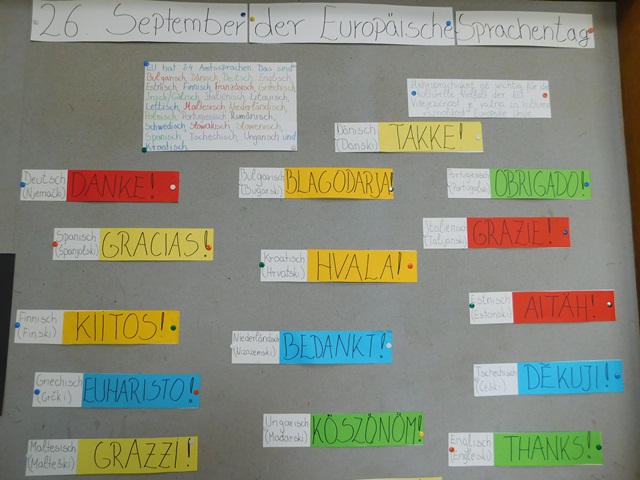 26. September der Europäische Sprachentag
EU hat 24 Amtssprachen. Das sind
Bulgarisch, Dänisch, Deutsch, Englisch,
Estnisch, Finnisch, Französisch, Griechisch,
Irisch/Gälisch, Italienisch, Litauisch,
Lettisch, Maltesisch, Niederländisch,
Polnisch, Portugiesisch, Rumänisch,
Schwedisch, Slowakisch, Slowenisch,
Spanisch, Tschechisch, Ungarisch und
Kroatisch.
Mehrsprachigkeit ist wichtig für die
kulturelle Vielfalt der EU
Višejezičnost je važna za kulturnu
Europske Unije
Dänisch
(Danski)
TAKKE!
Deutsch
(Njemački)
DANKE!
Bulgarisch
(Bugarski)
BLAGODARJA!
Portugiesisch
(Portugalski)
OBRIGADO!
Spanisch
(Španjolski)
GRACIAS!
Italienisch
(Talijanski)
GRAZIE!
Kroatisch
(Hrvatski)
HVALA!
Estnisch
(Estonski)
AITÄH!
Finnisch
(Finski)
KIITOS!
Niederländisch
(Nizozemski)
BEDANKT!
Griechisch
(Grčki)
EUHARISTO!
Tschechisch
(Češki)
DĚKUJI!
Ungarisch
(Mađarski)
KÖSZÖNÖM!
Maltesisch
(Malteški)
GRAZZI!
Englisch
(Engleski)
THANKS!